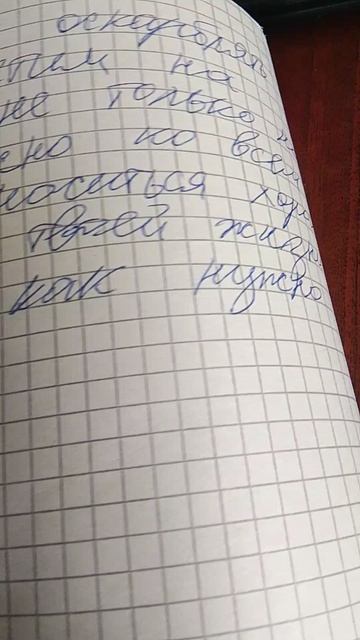 оскорблять
стим на
не только
ено ко всем
носиться хор
твоей жизн
как нужно